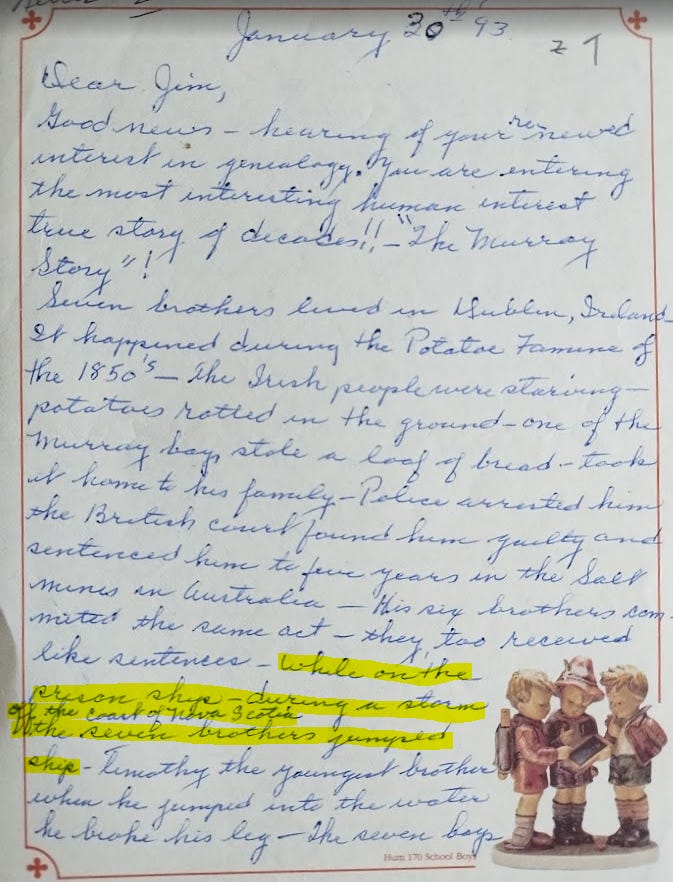 January 30th 93.
z 1
Dear Jim,
Good news - hearing of your renewed
interest in genealogy. You are entering
the most interesting human interest
true story of decades!! - "The Murray
Story"!
Seven brothers lived in Dublin, Ireland -
It happened during the Potatoe Famine of
the 1850's - The Irish people were starving -
potatoes rotted in the ground - one of the
Murray boys stole a loaf of bread - took
it home to his family - Police arrested him
the British court found him guilty and
sentenced him to five years in the Salt
mines in Australia - His six brothers com-
mited the same act - they, too received
like sentences - while on the
prison ship - during a storm
off the coast of Nova Scotia
the seven brothers jumped
ship - Timothy the youngest brother
when he jumped into the water
he broke his leg - The seven boys
Hum 170 School Boys